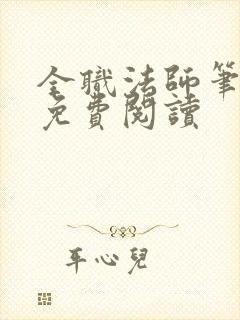 全職法師筆
免費閱讀
平心兒